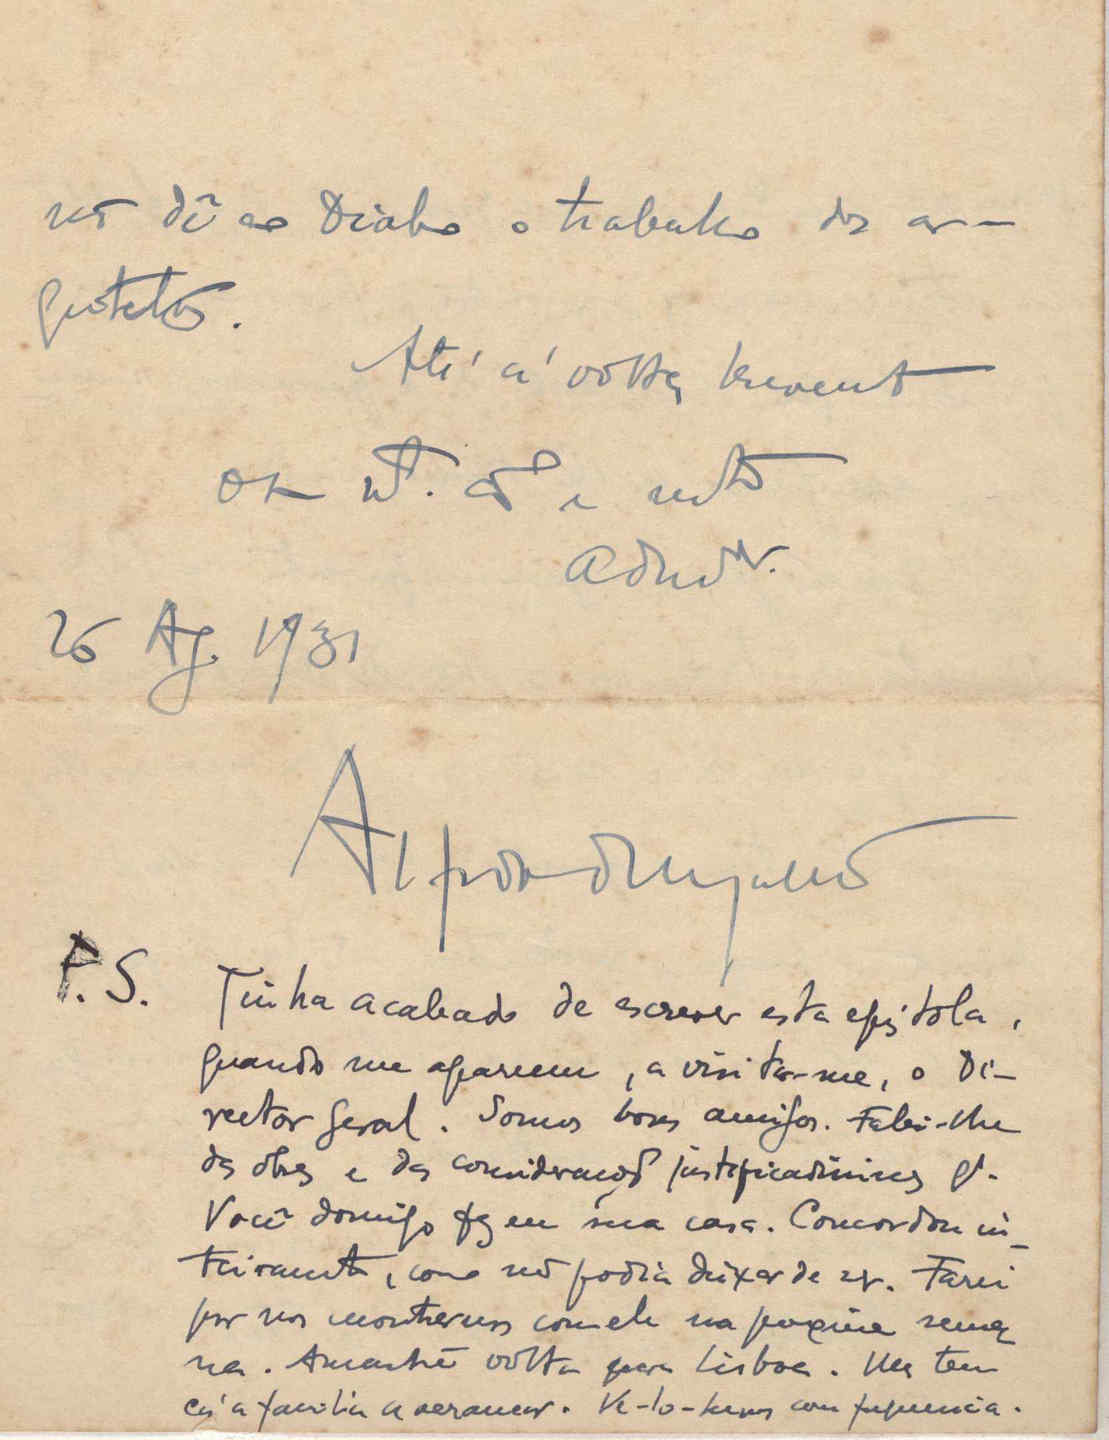 não dê ao Diabo o trabalho dos ar-
quitetos.
Até á volta brevemente
e mto
Admor.
26 Ag. 1931
P.S. Tinha acabado de escrever esta epistola,
quando me apareceu, a visitar-me, o Di-
rector Geral. Somos bons amigos. Falei-lhe
das obras e das considerações justificadissimas q.
Você domigo fez em sua casa. Concordou in-
teiramente, como não podia deixar de ser. Farei
por nos encontrarmos com ele na proxima sema
na. Amanhã volta para Lisboa. Mas tem
cá a familia a veranear. Ve-lo-hemos com frequencia.